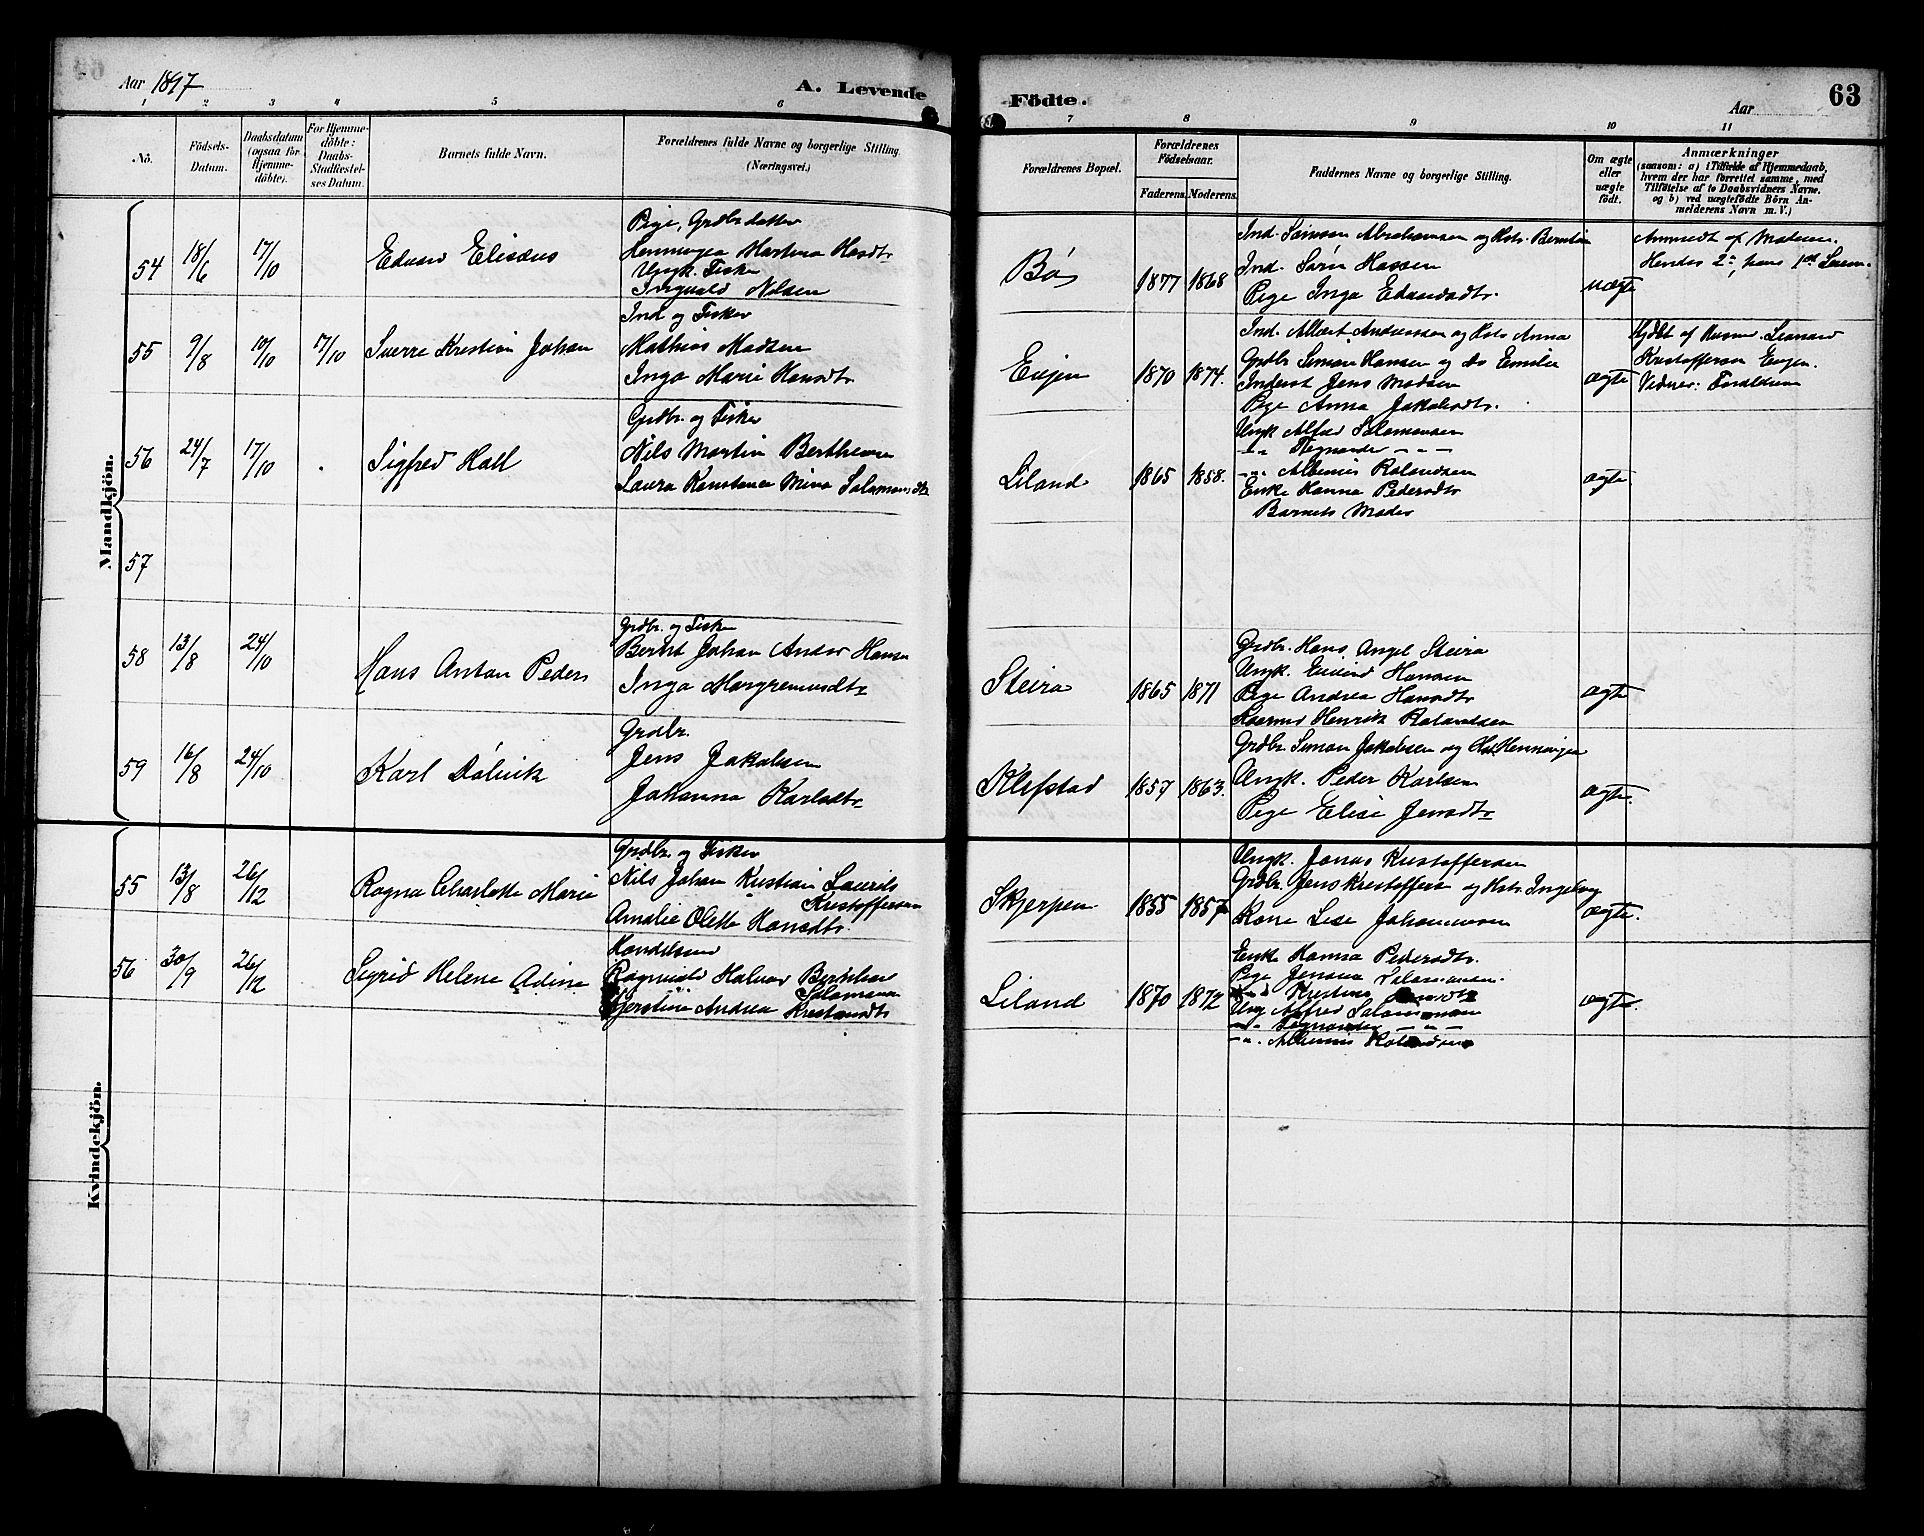 Aar 1897
A. Levende
Födte.
Aar
63
1 2 3 4 5 6 7 8 9 10 11
No.
Födsels-Datum.
Daabsdatum (ogsaa for Hjemme-döbte).
For Hjemme-döbte: Daabs-Stadfæstel-ses Datum.
Barnets fulde Navn.
Forældrenes fulde Navne og borgerlige Stilling.
(Næringsvei.)
Forældrenes Bopæl.
Forældrenes Födselsaar.
Faderens. Moderens.
Faddernes Navne og borgerlige Stilling.
Om ægte eller uægte født.
Anmærkninger
(saasom: a) i Tilfælde af Hjemmedaab,
hvem der har forrettet samme, med
Tilföielse af to Daabsvidners Navne.
og b) ved uægtefödte Börn An-
melderens Navn m. V.)
Mandkjön.
54 18/6 17/10 Edvard Elisæus
Pige, Grdbr.datter
Henningea Martina Hansdtr
Ungk. Fisker
Ingvald Nilsen
Bø 1877 1868
Ind. Abrahamsen og Hstr.
Ind. Søren Hansen
Pige Inga Edvardsdtr.
uægte
Anmeldt af Moderen.
Hendes 2det, hans 1ste
55 9/8 10/10 17/10 Sverre Kristian Johan
Ind og Fisker
Mathias Madsen
Inga Marie Hansdtr.
Evjen 1870 1874.
Ind. Albert Andreassen og Hstr Anna
Grdbr Simon Hansen og do Emilie
Inderst Jens Madsen
Pige Anna Jakobsdtr.
ægte
Hjdbt af Leonard
Kristoffersen Evjen.
Vidner: Forældrene
56 24/7 17/10 Sigfred Hall
Grdbr. og Fisker
Nils Martin Berthensen
Laura Konstance Mina Salamonsdtr
Liland 1865 1858.
Ungk Alfred Salamonsen
-"- Ragnander -"-
-"- Albinus Rolandsen
Enke Hanna Pedersdtr
Barnets Moder
ægte
57
58 13/8 24/10 Hans Anton Peder
Grdbr. og Fisker
Bernt Johan Andor Hansen
Inga Margremundtr
Steira 1865 1871
Grdbr. Hans Angel Steira
Ungk. Eivind Hansen
Pige Andrea Hansdtr
Rasmus Henrik Rolandsen
ægte
59 16/8 24/10 Karl Dølvik
Grdbr.
Jens Jakobsen
Johanna Karlsdtr
Klefstad 1857 1863.
Grdbr. Simon Jakobsen og Hst. Henningea
Ungk. Peder Karlsen
Pige Elise Jensdtr
ægte.
Kvindekjön.
55 13/8 26/12 Ragna Charlotte Marie
Grdbr. og Fisker
Nils Johan Kristian Laurits
Kristoffersen
Amalie Olette Hansdtr.
Skjerpen 1855 1857
Ungk. Jonas Kristoffersen
Grdbr. Jens Kristoffers. og Hstr. Ingeborg
Kone Lise Johannesen
ægte.
56 30/9 26/12 Sigrid Helene Adine
Handelsm
Ragnvald Halvar Bernhar
Salamonsen
Kjerstine Andrea Kristensdtr
Liland 1870 1872
Enke Hanna Pedersdtr.
Pige Jensine Salamonsen.
Kristine
Ung Alfred Salamonsen
-"- Ragnander -"-
-"- Albinus Rolandsen
ægte.